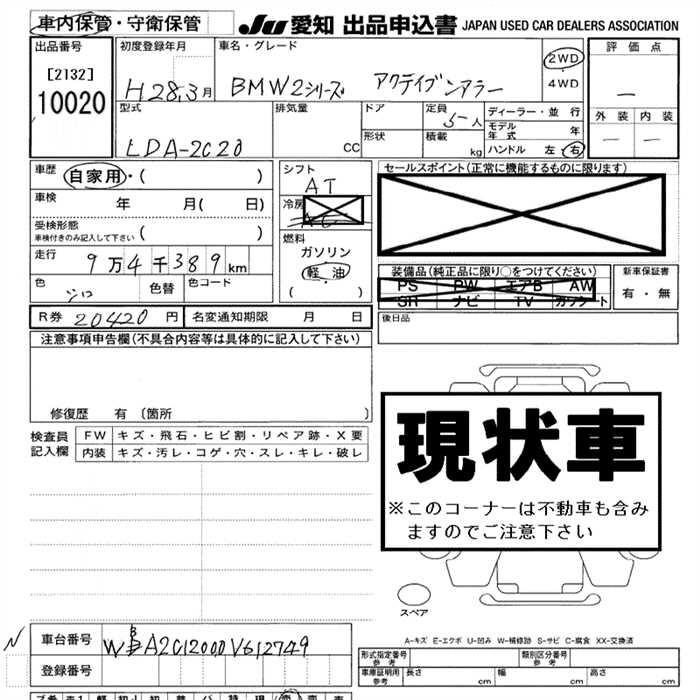 車内保管・守衛保管
JU 愛知 出品申込書 JAPAN USED CAR DEALERS ASSOCIATION
出品番号
[2132]
10020
初度登録年月
H28.3月
車名・グレード
BMW2シリーズ アクティブツアラー
2WD
・4WD
評価点
—
外装 内装
— —
型式
LDA-2C20
排気量
CC
ドア
形状
定員
5人
積載
kg
ディーラー・並行
モデル年式 年
ハンドル 左・右
車歴 自家用・( )
車検 年 月( 日)
受検形態
車検付きのみ記入して下さい ( )
走行 9万4千389km
色 シロ 色替 色コード
シフト
AT
冷房
AC
燃料
ガソリン
軽油
( )
セールスポイント(正常に機能するものに限ります)
装備品(純正品に限り○をつけてください)
PS PW エアB AW
SR ナビ TV カワシート
新車保証書
有・無
R券 20420円 名変通知期限 月 日
後日品
注意事項申告欄(不具合内容等は具体的に記入して下さい)
修復歴 有 〔箇所 〕
検査員
記入欄
FW キズ・飛石・ヒビ割・リペア跡・X要
内装 キズ・汚レ・コゲ・穴・スレ・キレ・破レ
現状車
※このコーナーは不動車も含み
ますのでご注意下さい
スペア
A-キズ E-エクボ U-凹み W-補修跡 S-サビ C-腐食 XX-交換済
N
車台番号 WBA2C12000V612749
登録番号
形式指定番号
参考
類別区分番号
参考
車庫証明用
参考
長さ cm 幅 cm 高さ cm